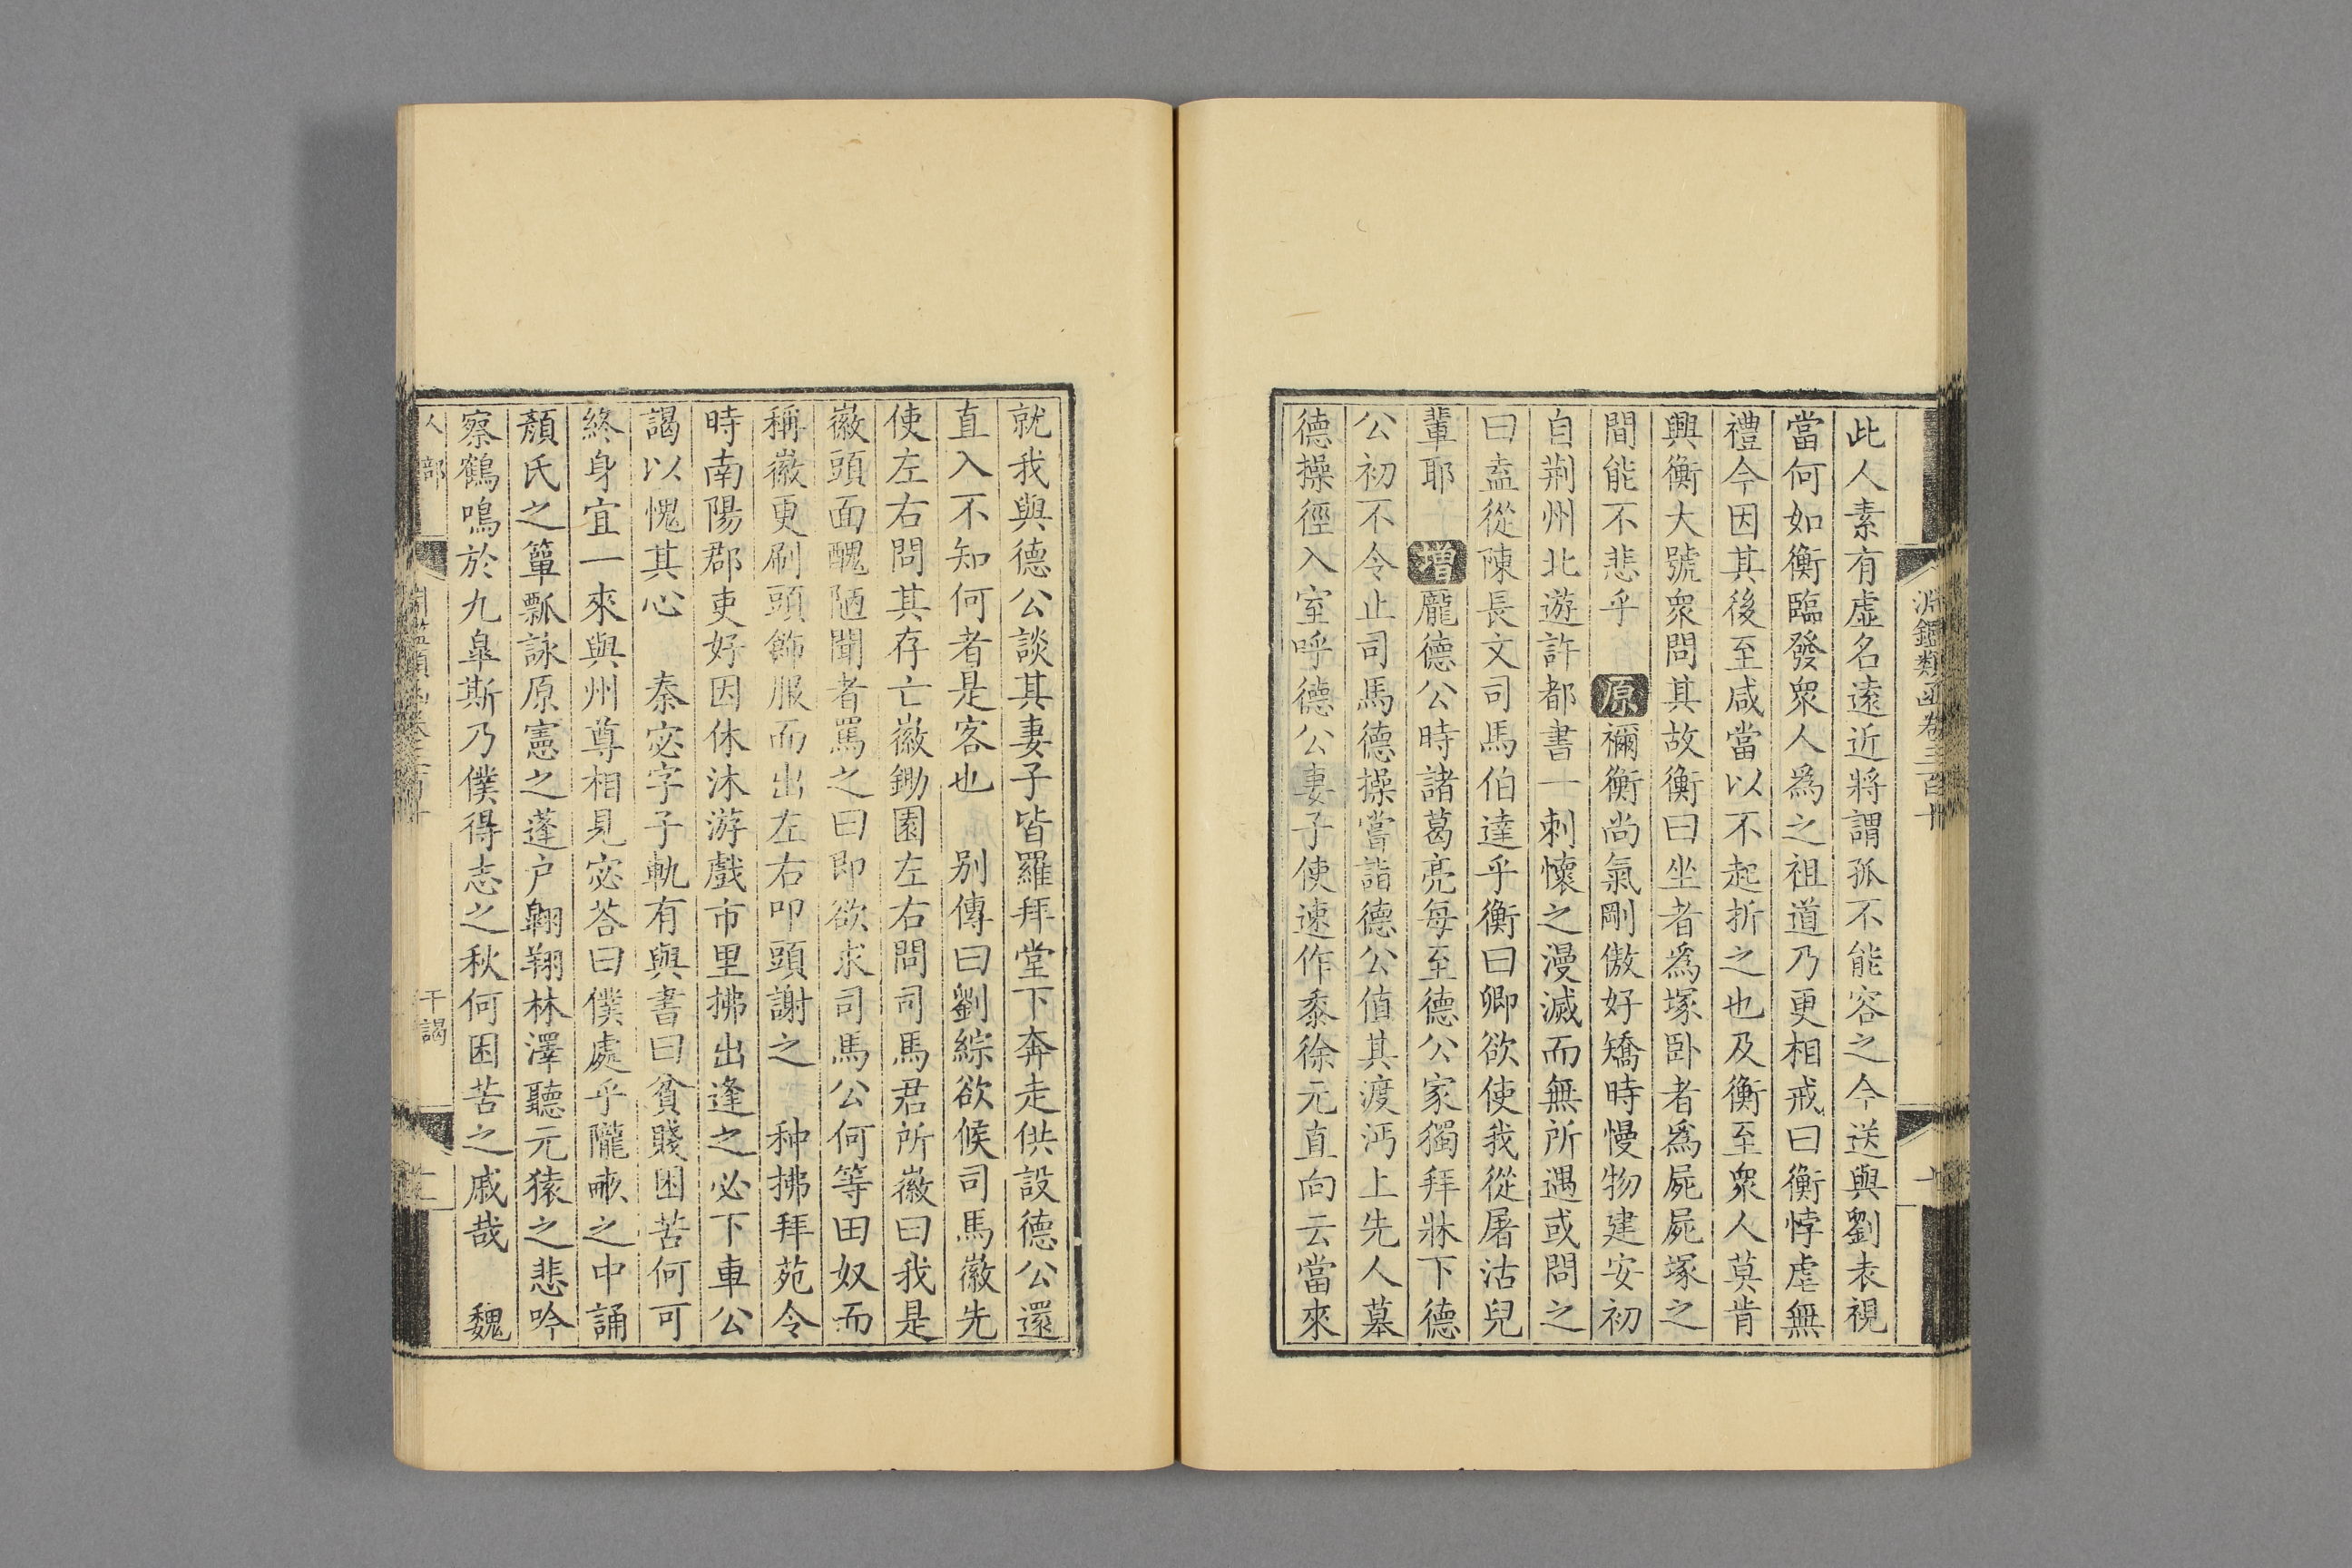 淵鑑類函卷三百十
此人素有虛名遠近將謂孤不能容之今送與劉表視
當何如衡臨發衆人爲之祖道乃更相戒曰衡悖虐無
禮今因其後至咸當以不起折之也及衡至衆人莫肯
興衡大號衆問其故衡曰坐者爲塚卧者爲屍屍塚之
間能不悲乎　原禰衡尚氣剛傲好矯時慢物建安初
自荆州北遊許都書一刺懷之漫滅而無所遇或問之
曰盍從陳長文司馬伯達乎衡曰卿欲使我從屠沽兒
輩耶　增龐德公時諸葛亮每至德公家獨拜牀下德
公初不令止司馬德操嘗詣德公值其渡沔上先人墓
德操徑入室呼德公妻子使速作黍徐元直向云當來
就我與德公談其妻子皆羅拜堂下奔走供設德公還
直入不知何者是客也　別傳曰劉綜欲候司馬徽先
使左右問其存亡徽鋤園左右問司馬君所徽曰我是
徽頭面醜陋聞者罵之曰即欲求司馬公何等田奴而
稱徽更刷頭飾服而出左右叩頭謝之　种拂拜苑令
時南陽郡吏好因休沐游戲市里拂出逢之必下車公
謁以愧其心　秦宓字子軌有與書曰貧賤困苦何可
終身宜一來與州尊相見宓荅曰僕處乎隴畝之中誦
顏氏之簞瓢詠原憲之蓬户翱翔林澤聽元猿之悲吟
察鶴鳴於九臯斯乃僕得志之秋何困苦之戚哉　魏
人部
干謁